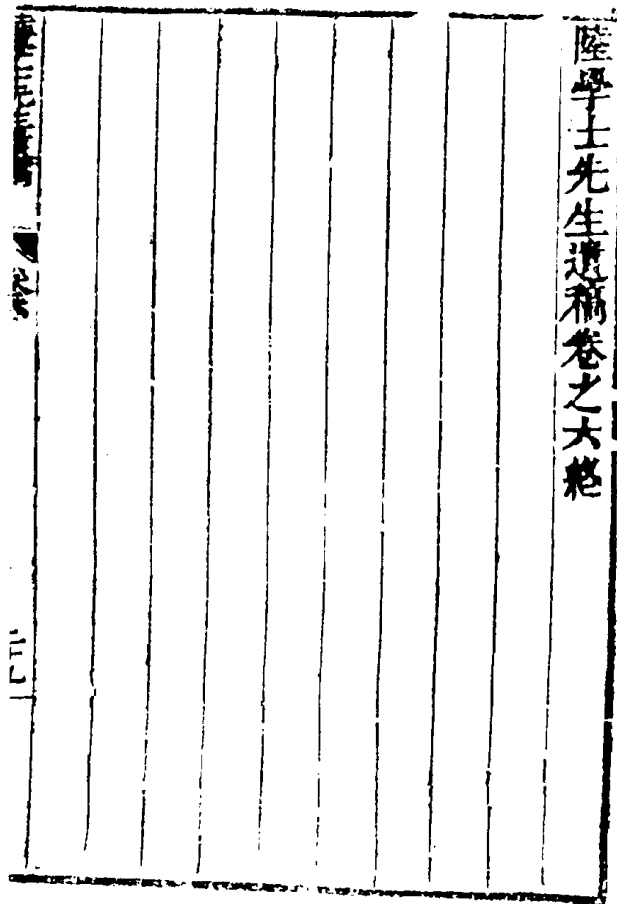 陸學士先生遺稿卷之六終